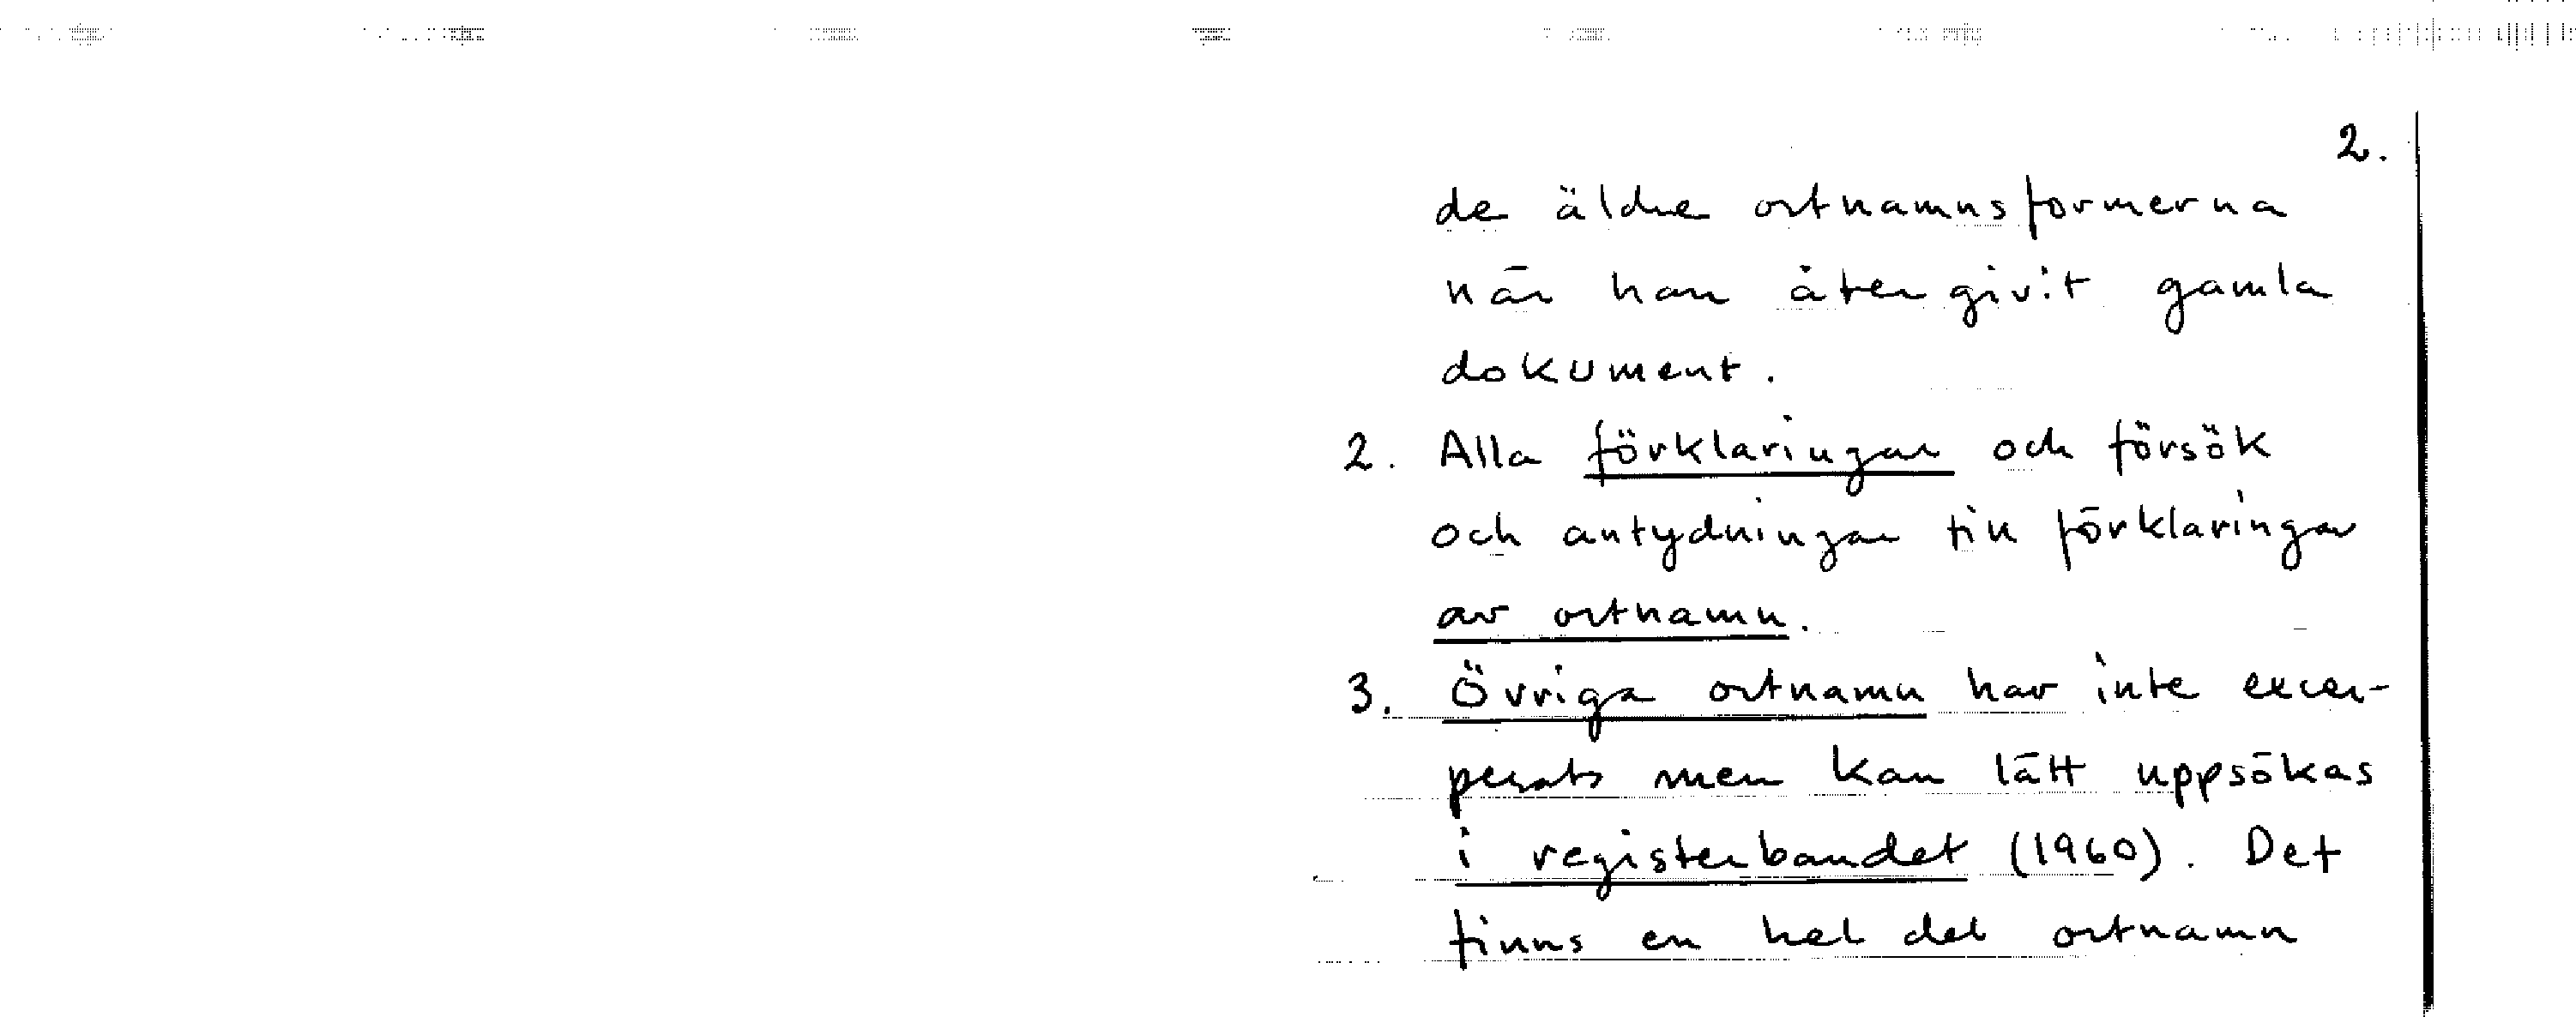 2.
de äldre ortnamnsformerna
när han återgivit gamla
dokument.
2. Alla förklaringar och försök
och antydningar till förklaringar
av ortnamn.
3. Övriga ortnamn har inte excer-
perats men kan lätt uppsökas
i registerbandet (1960). Det
finns en hel del ortnamn